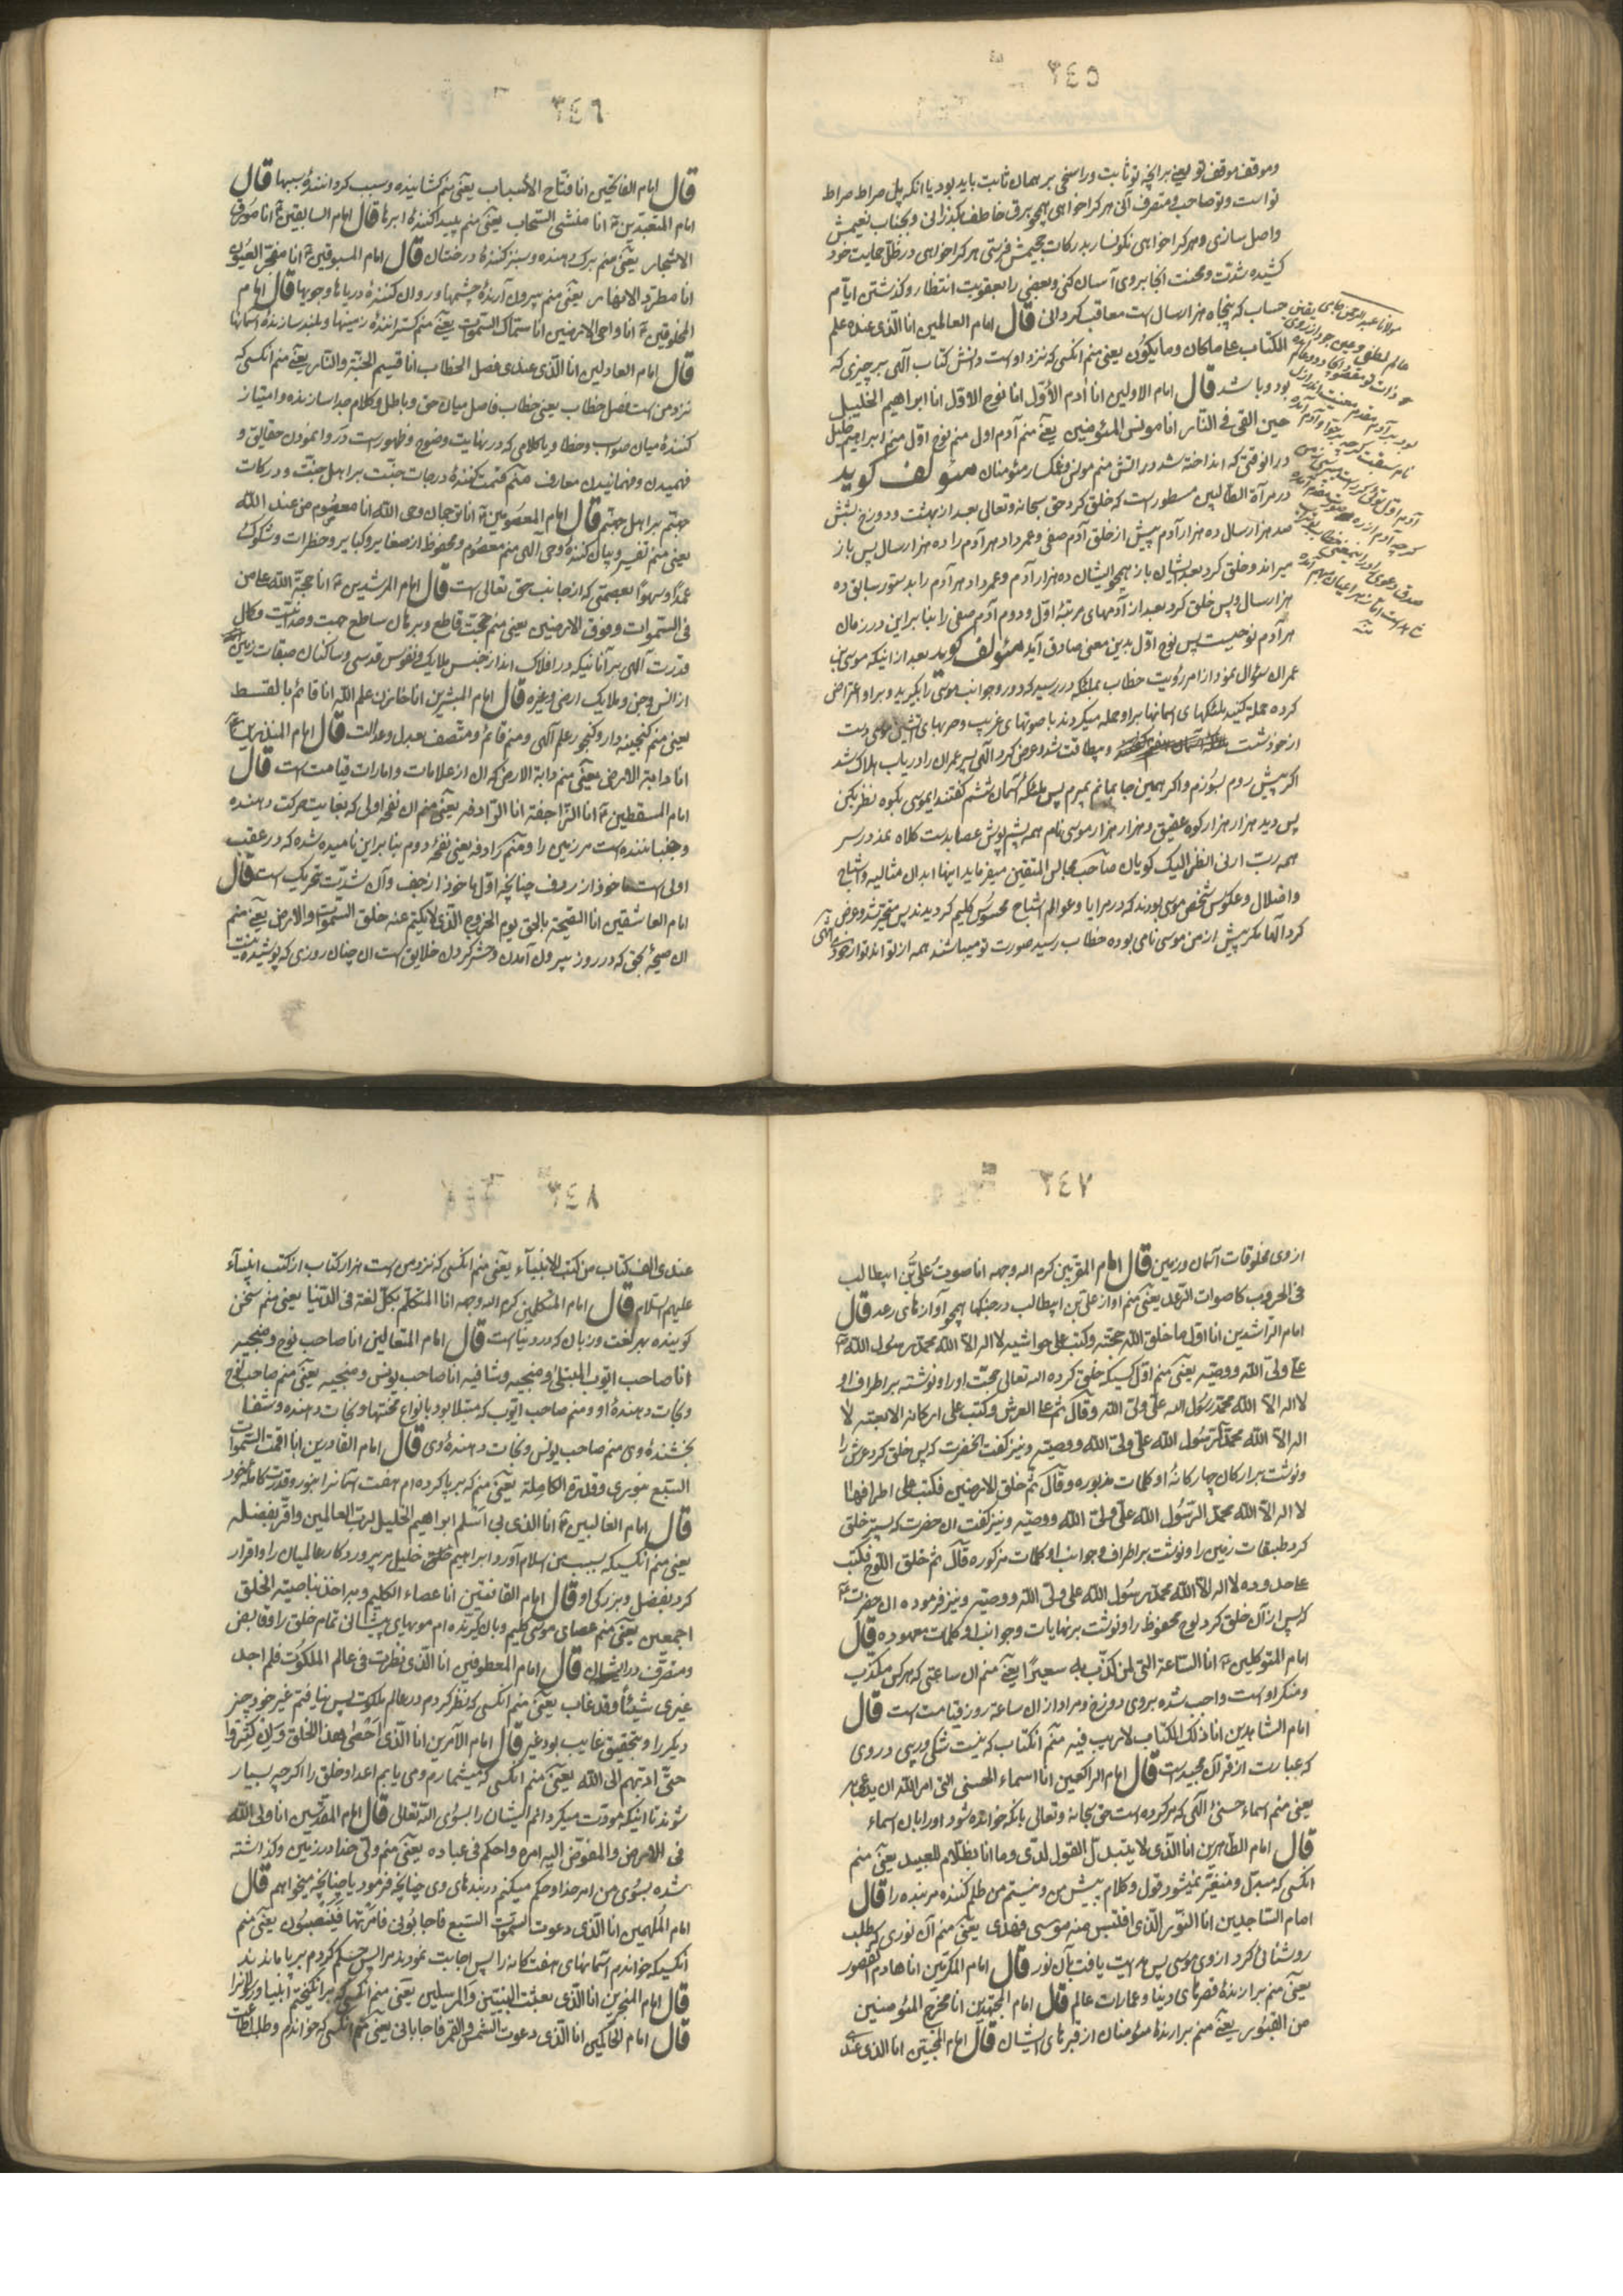 ٣٤٥
وموقف موقف تو یعنی بر انچه تو ثابت وراسخی بر همان ثابت باید بود یا انکه پل صراط صراط
تو است و تو صاحب و متصرف انی هر کرا خواهی همچو برق خاطف بگذرانی و بجناب نعیمش
واصل سازی و هر کرا خواهی نکونسار بدرکات جحیمش فرستی هر کرا خواهی در ظل حمایت خود
کشیده شدت و محنت انجا بروی آسان کنی و بعضی را بعقوبت انتظار و کذشتن ایام
حساب که پنجاه هزار سال است معاقب کردانی قال امام العالمین انا الذی عنده علم
الکتاب علی ما کان وما یکون یعنی منم انکسی که نزد او است دانش کتاب الهی بر چیزی که
بود و باشد قال امام الاولین انا آدم الاول انا نوح الاول انا ابراهیم الخلیل
حین القی فی النار انا مونس المؤمنین یعنی منم آدم اول منم نوح اول منم ابراهیم خلیل
در انوقتی که انداخته شد در اتش منم مونس و غمکسار مؤمنان مؤلف کوید
در مرآة الطالبین مسطور است که خلق کرد حق سبحانه وتعالی بعد از بهشت و دوزخ بشش
صد هزار سال ده هزار آدم پیش از خلق آدم صفی و عمر داد هر آدم را ده هزار سال پس باز
میراند و خلق کرد بعد ایشان باز همچو ایشان ده هزار آدم و عمر داد هر آدم را بدستور سابق ده
هزار سال و پس خلق کرد بعد از آدمهای مرتبه اول و دوم آدم صفی را بنا براین در زمان
هر آدم نوحیست پس نوح اول بدین معنی صادق آید مؤلف کوید بعد از انیکه موسی بن
عمران سؤال نمود از امر رؤیت خطاب بملئکه در رسید که دور و جوانب موسی را بکیرید و بر او اعتراض
کرده حمله کنید ملئکهای اسمانها بر او حمله میکردند با صوتهای غریب و حربهای اتشین موسی دست
از خود شست و بیطاقت شد و عرض کرد الهی پسر عمران را دریاب هلاک شد
اکر پیش روم بسوزم و اکر همین جا بمانم بمیرم پس ملئکه آسمان ششم کفتند ایموسی بکوه نظر بکن
پس دید هزار هزار کوه عقیق و هزار هزار موسی نام همه پشم پوش عصا بدست کلاه نمد در سر
همه رب ارنی انظر الیک کویان صاحب مجالس المتقین میفرماید اینها ابدان مثالیه و اشباح
و اضلال و عکوس شخص موسی بودند که در مرایا و عوالم اشباح محسوس کلیم کردیدند پس متحیر شد و عرض
کرد الها مکر پیش از من موسی نامی بوده خطاب رسید صورت تو میباشند همه از تو اند تو از خود
مولانا عبد الرحمن جامی
٣٤٦
قال امام الفاتحین انا فتاح الاسباب یعنی منم کشاینده و سبب کرداننده سببها قال
امام المتعبدین انا منشی السحاب یعنی منم پیدا کننده ابرها قال امام السابقین انا مورق
الاشجار یعنی منم برک دهنده و سبز کننده درختان قال امام المسبوقین انا مفجر العیون
انا مطرد الانهار یعنی منم بیرون آرنده چشمها و روان کننده دریاها و جویها قال امام
المخلوقین انا داحی الارضین انا سماک السموات یعنی منم کستراننده زمینها و بلند سازنده اسمانها
قال امام العادلین انا الذی عندی فصل الخطاب انا قسیم الجنة والنار یعنی منم انکسی که
نزد من است فصل خطاب یعنی خطاب فاصل میان حق و باطل و کلام جدا سازنده و امتیاز
کننده میان صواب و خطا و یا کلامی که در نهایت وضوح و ظهور است در وا نمودن حقایق و
فهمیدن و فهمانیدن معارف منم قسمت کننده درجات جنت بر اهل جنت و درکات
جهنم بر اهل جهنم قال امام المعصومین انا ترجمان وحی الله انا معصوم من عند الله
یعنی منم تفسیر و بیان کننده وحی الهی منم معصوم و محفوظ از صغایر و کبایر و خطرات و شکوک
عمدا و سهوا بعصمتی که از جانب حق تعالی است قال امام المرشدین انا حجة الله علی من
فی السموات و فوق الارضین یعنی منم حجت قاطع و برهان ساطع جهت وحدانیت و کمال
قدرت الهی بر آنانیکه در افلاک اند از جنس ملایک و نفوس قدسی و ساکنان طبقات زمین
از انس و جن و ملایک ارضی و غیره قال امام المبشرین انا خازن علم الله انا قائم بالقسط
یعنی منم کنجینه دار و کنجور علم الهی و منم قائم و متصف بعدل و عدالت قال امام المنذرین
انا دابة الارض یعنی منم دابة الارض که ان از علامات و امارات قیامت است قال
امام المسقطین انا الراجفة انا الرادفه یعنی منم ان نفحه اولی که بغایت حرکت دهنده
و جنباننده است مر زمین را و منم رادفه یعنی نفخه دوم بنا براین نامیده شده که در عقب
اولی است ماخوذ از ردف چنانچه اول ماخوذ از رجف و آن شدت تحریک است قال
امام العاشقین انا الصیحة بالحق یوم الخروج الذی لایکتم عنه خلق السموات والارض یعنی منم
ان صیحه بحق که در روز بیرون آمدن و حشر کردن خلایق است ان چنان روزی که پوشیده نیست
٣٤٧
از وی مخلوقات آسمان و زمین قال امام المقربین کرم الله وجهه انا صوت علی بن ابیطالب
فی الحروب کاصوات الرعد یعنی منم اواز علی بن ابیطالب در جنکها همچو آوازهای رعد قال
امام الراشدین انا اول ما خلق الله حجته وکتب علی حواشیه لا اله الا الله محمد رسول الله
علی ولی الله ووصیه یعنی منم اول کسیکه خلق کرده الله تعالی حجت او را و نوشته بر اطراف او
لا اله الا الله محمد رسول الله علی ولی الله وقال ثم خلق العرش وکتب علی ارکانه الاربعة لا
اله الا الله محمد رسول الله علی ولی الله ووصیه و نیز کفت انحضرت که پس خلق کرد عرش را
و نوشت بر ارکان چهار کانه او کلمات مزبوره وقال ثم خلق الارضین فکتب علی اطرافها
لا اله الا الله محمد الرسول الله علی ولی الله ووصیه و نیز کفت ان حضرت که پستر خلق
کرد طبقات زمین را و نوشت بر اطراف و جوانب او کلمات مذکوره قال ثم خلق اللوح فکتب
علی حدوده لا اله الا الله محمد رسول الله علی ولی الله ووصیه و نیز فرموده ان حضرت
که پس از آن خلق کرد لوح محفوظ را و نوشت بر نهایات و جوانب او کلمات معهوده قال
امام المتوکلین انا الساعة التی لمن کذب بها سعیرا یعنی منم ان ساعتی که هر کس مکذب
و منکر او است واجب شده بروی دوزخ و مراد از ان ساعة روز قیامت است قال
امام الشاهدین انا ذلک الکتاب لاریب فیه منم انکتاب که نیست شکی و ریبی در وی
که عبارت از قرآن مجید است قال امام الراکعین انا اسماء الحسنی التی امر الله ان یدعی بها
یعنی منم اسماء حسنی الهی که امر کرده است حق سبحانه وتعالی بانکه خوانده شود او را بان اسماء
قال امام الطاهرین انا الذی لا یتبدل القول لدی وما انا بظلام للعبید یعنی منم
انکسی که مبدل و متغیر نمیشود قول و کلام پیش من و نیستم من ظلم کننده مر بنده را قال
امام الساجدین انا النور الذی اقتبس منه موسی فهدی یعنی منم آن نوری که طلب
روشنائی کرد از وی موسی پس هدایت یافت بآن نور قال امام المکرمین انا هادم القصور
یعنی منم براندازنده قصرهای دنیا و عمارات عالم قال امام المجتهدین انا مخرج المؤمنین
من القبور یعنی منم برارنده مؤمنان از قبرهای ایشان قال امام المحبتین انا الذی عندی
٣٤٨
عندی الف کتاب من کتب الانبیاء یعنی منم انکسی که نزد من است هزار کتاب از کتب انبیاء
علیهم السلام قال امام المتکلمین کرم الله وجهه انا المتکلم بکل لغة فی الدنیا یعنی منم سخن
کوینده بهر لغت و زبان که در دنیا است قال امام المتعالین انا صاحب نوح و منجیه
انا صاحب ایوب المبتلی و منجیه و شافیه انا صاحب یونس و منجیه یعنی منم صاحب نوح
و نجات دهنده او و منم صاحب ایوب که مبتلا بود بانواع محنتها و نجات دهنده و شفا
بخشنده وی منم صاحب یونس و نجات دهنده وی قال امام القادرین انا اقمت السموات
السبع بنوری و قدرتی الکاملة یعنی منم که بر پا کرده ام هفت آسمانرا بنور و قدرت کامله خود
قال امام الغالبین انا الذی بی اسلم ابراهیم الخلیل لرب العالمین واقر بفضله
یعنی منم انکسیکه بسبب من اسلام آورد ابراهیم خلیل مر پروردکار عالمیان را و اقرار
کرد بفضل و بزرکی او قال امام القانتین انا عصاء الکلیم و به اخذ بناصیة الخلق
اجمعین یعنی منم عصای موسی کلیم و بان کیرنده ام مویهای پیشانی تمام خلق را و قابض
و متصرف در ایشان قال امام المعطوفین انا الذی نظرت فی عالم الملکوت فلم اجد
غیری شیئا وقد غاب یعنی منم انکسی که نظر کردم در عالم ملکوت پس نیافتم غیر خود چیز
دیکر را و بتحقیق غایب بود غیر قال امام الآمرین انا الذی احصی هذا الخلق وان کثروا
حتی اردتهم الی الله یعنی منم انکسی که میشمارم و می یابم اعداد خلق را اکرچه بسیار
شوند تا انیکه عودت میکردانم ایشان را بسوی الله تعالی قال امام المقدسین انا ولی الله
فی الارض والمفوض الیه امره واحکم فی عباده یعنی منم ولی خدا در زمین و کذاشته
شده بسوی من امر خدا و حکم میکنم در بندهای وی چنانچه فرمود یا چنانچه میخواهم قال
امام الملهمین انا الذی دعوت السموات السبع فاجابونی فامرتها فینصبون یعنی منم
انکسیکه خواندم آسمانهای هفت کانه را پس اجابت نمودند مرا پس حکم کردم بر پا ماندند
قال امام المنجزین انا الذی بعثت النبیین والمرسلین یعنی منم انکسی که بر انکیختم انبیا و رسولانرا
قال امام الحاکمین انا الذی دعوت الشمس والقمر فاجابانی یعنی منم انکسی که خواندم و طلب اطاعت